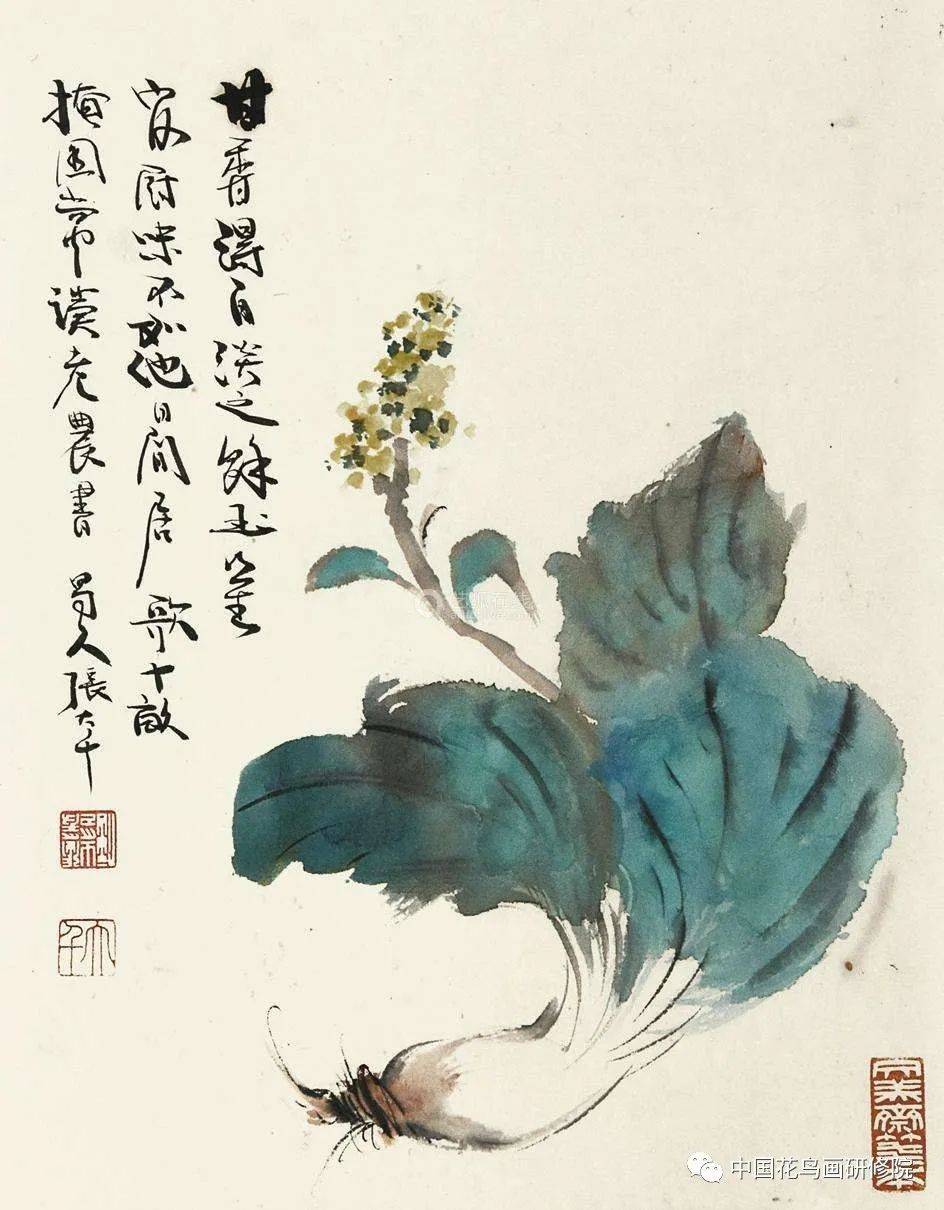 甘香得自淡之餘玉
官厨味不如他日閒居歌十畝
常讀老農書 蜀人張大千
大千
中国花鸟画研修院